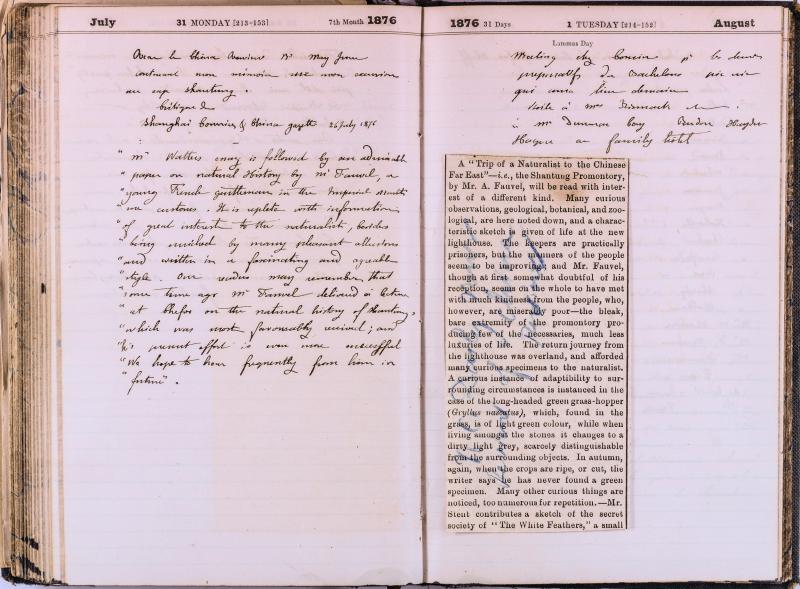 July
31 MONDAY [213-153]
7th Month 1876
China Review No May June
continued mon mémoire sur mon excursion
au cap shantung.
Critique de
Shanghai Courier & China gazette 26 July 1876
" Mr Watters essay is followed by an admirable
" paper on natural History by Mr Fauvel, a
" young French gentleman in the Imperial Mariti
me customs. It is replete with information
" of great interest to the naturalist, besides
" being enriched by many pleasant allusions
" and written in a fascinating and agreeable
" style. Our readers may remember that
" some time ago Mr Fauvel delivered a lecture
" at Chefoo on the natural history of Shantung,
" which was most favourably received; and
" his present effort is even more successful
" We hope to hear frequently from him in
" future".
1876 31 Days
1 TUESDAY [214-152]
August
Lammas Day
Meeting chez
préparatifs du
qui aura lieu demain
visite à Mrs
à Mr Duncan
au family hotel
A "Trip of a Naturalist to the Chinese
Far East"—i.e., the Shantung Promontory,
by Mr. A. Fauvel, will be read with inter-
est of a different kind. Many curious
observations, geological, botanical, and zoo-
logical, are here noted down, and a charac-
teristic sketch is given of life at the new
lighthouse. The keepers are practically
prisoners, but the manners of the people
seem to be improving; and Mr. Fauvel,
though at first somewhat doubtful of his
reception, seems on the whole to have met
with much kindness from the people, who,
however, are miserably poor—the bleak,
bare extremity of the promontory pro-
ducing few of the necessaries, much less
luxuries of life. The return journey from
the lighthouse was overland, and afforded
many curious specimens to the naturalist.
A curious instance of adaptibility to sur-
rounding circumstances is instanced in the
case of the long-headed green grass-hopper
(Gryllus nasutus), which, found in the
grass, is of light green colour, while when
living amongst the stones it changes to a
dirty light grey, scarcely distinguishable
from the surrounding objects. In autumn,
again, when the crops are ripe, or cut, the
writer says he has never found a green
specimen. Many other curious things are
noticed, too numerous for repetition.—Mr.
Stent contributes a sketch of the secret
society of "The White Feathers," a small